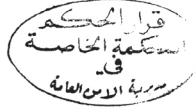 قرار الحكم
محكمة الخاصة
في
مديرية الامن العامة